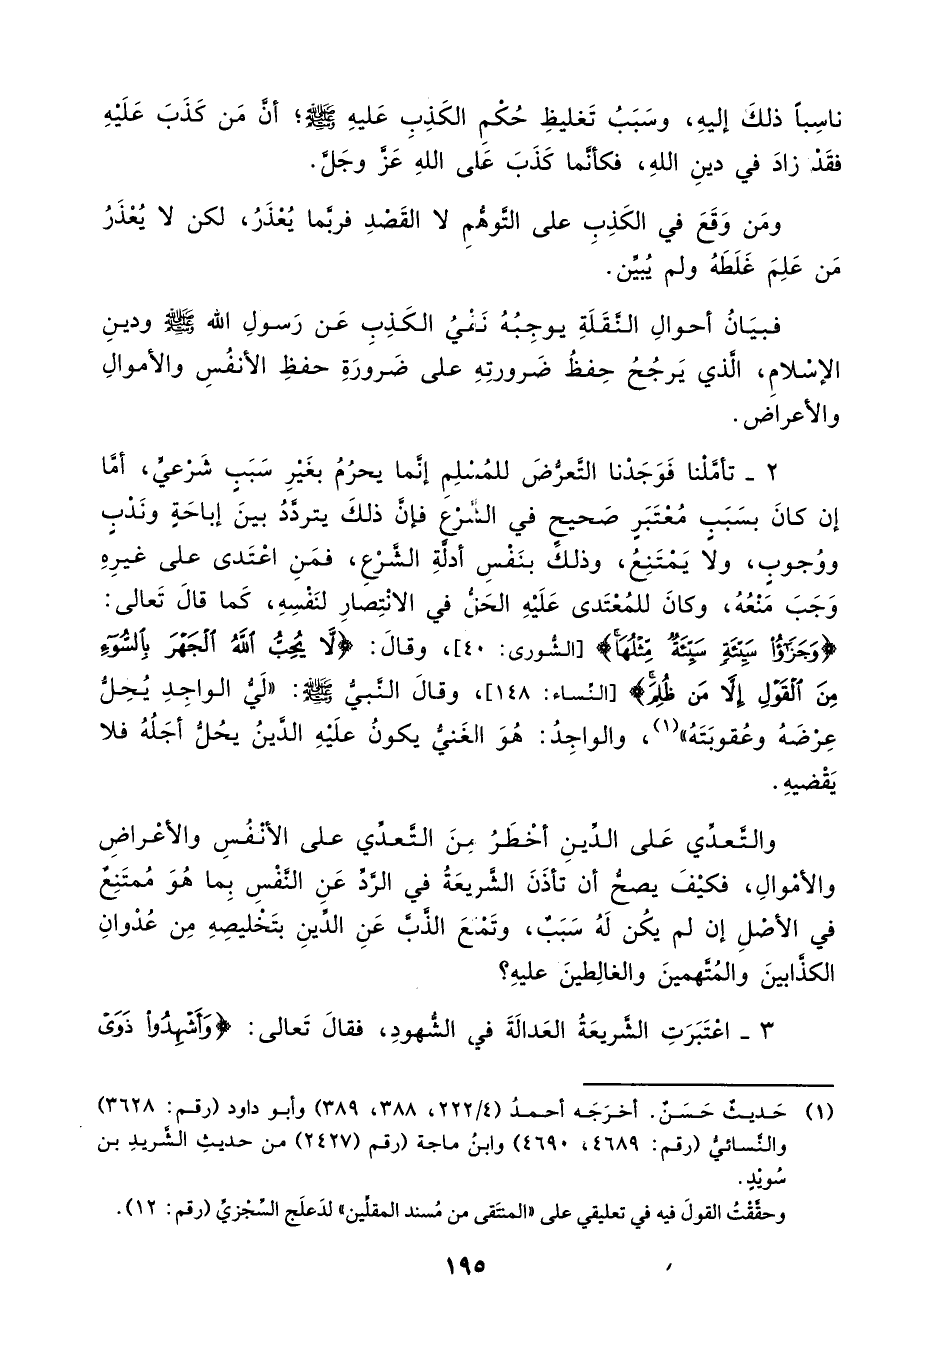 ناسِباً ذلكَ إليهِ، وسَبَبُ تَغليظِ حُكْمِ الكَذِبِ عَليهِ ﷺ؛ أنَّ مَن كَذَبَ عَلَيْهِ
فقَدْ زادَ في دينِ اللهِ، فكأنَّما كَذَبَ عَلى اللهِ عَزَّ وجَلَّ.
ومَن وَقَعَ في الكَذِبِ على التَّوهُّمِ لا القَصْدِ فربَّما يُعْذَرُ، لكن لا يُعْذَرُ
مَن عَلِمَ غَلَطَهُ ولم يُبيِّن.
فبيَانُ أحوالِ النَّقَلَةِ يوجِبُهُ نَفْيُ الكَذِبِ عَن رَسولِ الله ﷺ ودينِ
الإسْلامِ، الَّذي يَرجُحُ حِفظُ ضَرورتِهِ على ضَرورَةِ حفظِ الأنفُسِ والأموالِ
والأعراضِ.
٢ ـ تأمَّلْنا فَوَجَدْنا التَّعرُّضَ للمُسْلِمِ إنَّما يحرُمُ بغَيْرِ سَبَبٍ شَرْعيٍّ، أمَّا
إن كانَ بسَبَبٍ مُعْتَبَرٍ صَحيحٍ في الشَّرْعِ فإنَّ ذلكَ يتردَّدُ بينَ إباحَةٍ ونَدْبٍ
ووُجوبٍ، ولا يَمْتَنِعُ، وذلكَ بنَفْسِ أدلَّةِ الشَّرْعِ، فمَنِ اعْتَدى على غيرِهِ
وَجَبَ مَنْعُهُ، وكانَ للمُعْتَدى عَلَيْهِ الحَقُّ في الانْتِصارِ لنَفْسِهِ، كَما قالَ تَعالى:
﴿وَجَزَٰٓؤُا۟ سَيِّئَةٍ سَيِّئَةٌ مِّثْلُهَا﴾ [الشورى: ٤٠]، وقالَ: ﴿لَّا يُحِبُّ ٱللَّهُ ٱلْجَهْرَ بِٱلسُّوٓءِ
مِنَ ٱلْقَوْلِ إِلَّا مَن ظُلِمَ﴾ [النّساء: ١٤٨]، وقالَ النَّبيُّ ﷺ: «لَيُّ الواجِدِ يُحِلُّ
عِرْضَهُ وعُقوبَتَهُ»(١)، والواجِدُ: هُوَ الغَنيُّ يكونُ علَيْهِ الدَّينُ يحُلُّ أجَلُهُ فلا
يَقْضيهِ.
والتَّعدِّي عَلى الدِّينِ أخْطَرُ مِنَ التَّعدِّي على الأنْفُسِ والأعْراضِ
والأمْوالِ، فكيْفَ يصحُّ أن تأذَنَ الشَّريعَةُ في الرَّدِّ عَنِ النَّفْسِ بِما هُوَ مُمتَنِعٌ
في الأصْلِ إن لم يكُن لَهُ سَبَبٌ، وتَمْنَعَ الذَّبَّ عَنِ الدِّينِ بتَخْليصِهِ مِن عُدْوانِ
الكذَّابينَ والمُتَّهمينَ والغالِطينَ عليهِ؟
٣ ـ اعْتَبَرَتِ الشَّريعَةُ العَدالَةَ في الشُّهودِ، فقالَ تَعالى: ﴿وَأَشْهِدُوا۟ ذَوَىْ
(١) حَديثٌ حَسَنٌ. أخرَجَه أحمدُ (٢٢٢/٤، ٣٨٨، ٣٨٩) وأبو داود (رقم: ٣٦٢٨)
والنَّسائيُّ (رقم: ٤٦٨٩، ٤٦٩٠) وابنُ ماجة (رقم (٢٤٢٧) من حديثِ الشَّريدِ بن
سُويْدٍ.
وحقَّقْتُ القولَ فيه في تعليقي على «المنتَقى من مُسند المقلِّين» لدَعلَج السِّجْزيِّ (رقم: ١٢).
١٩٥